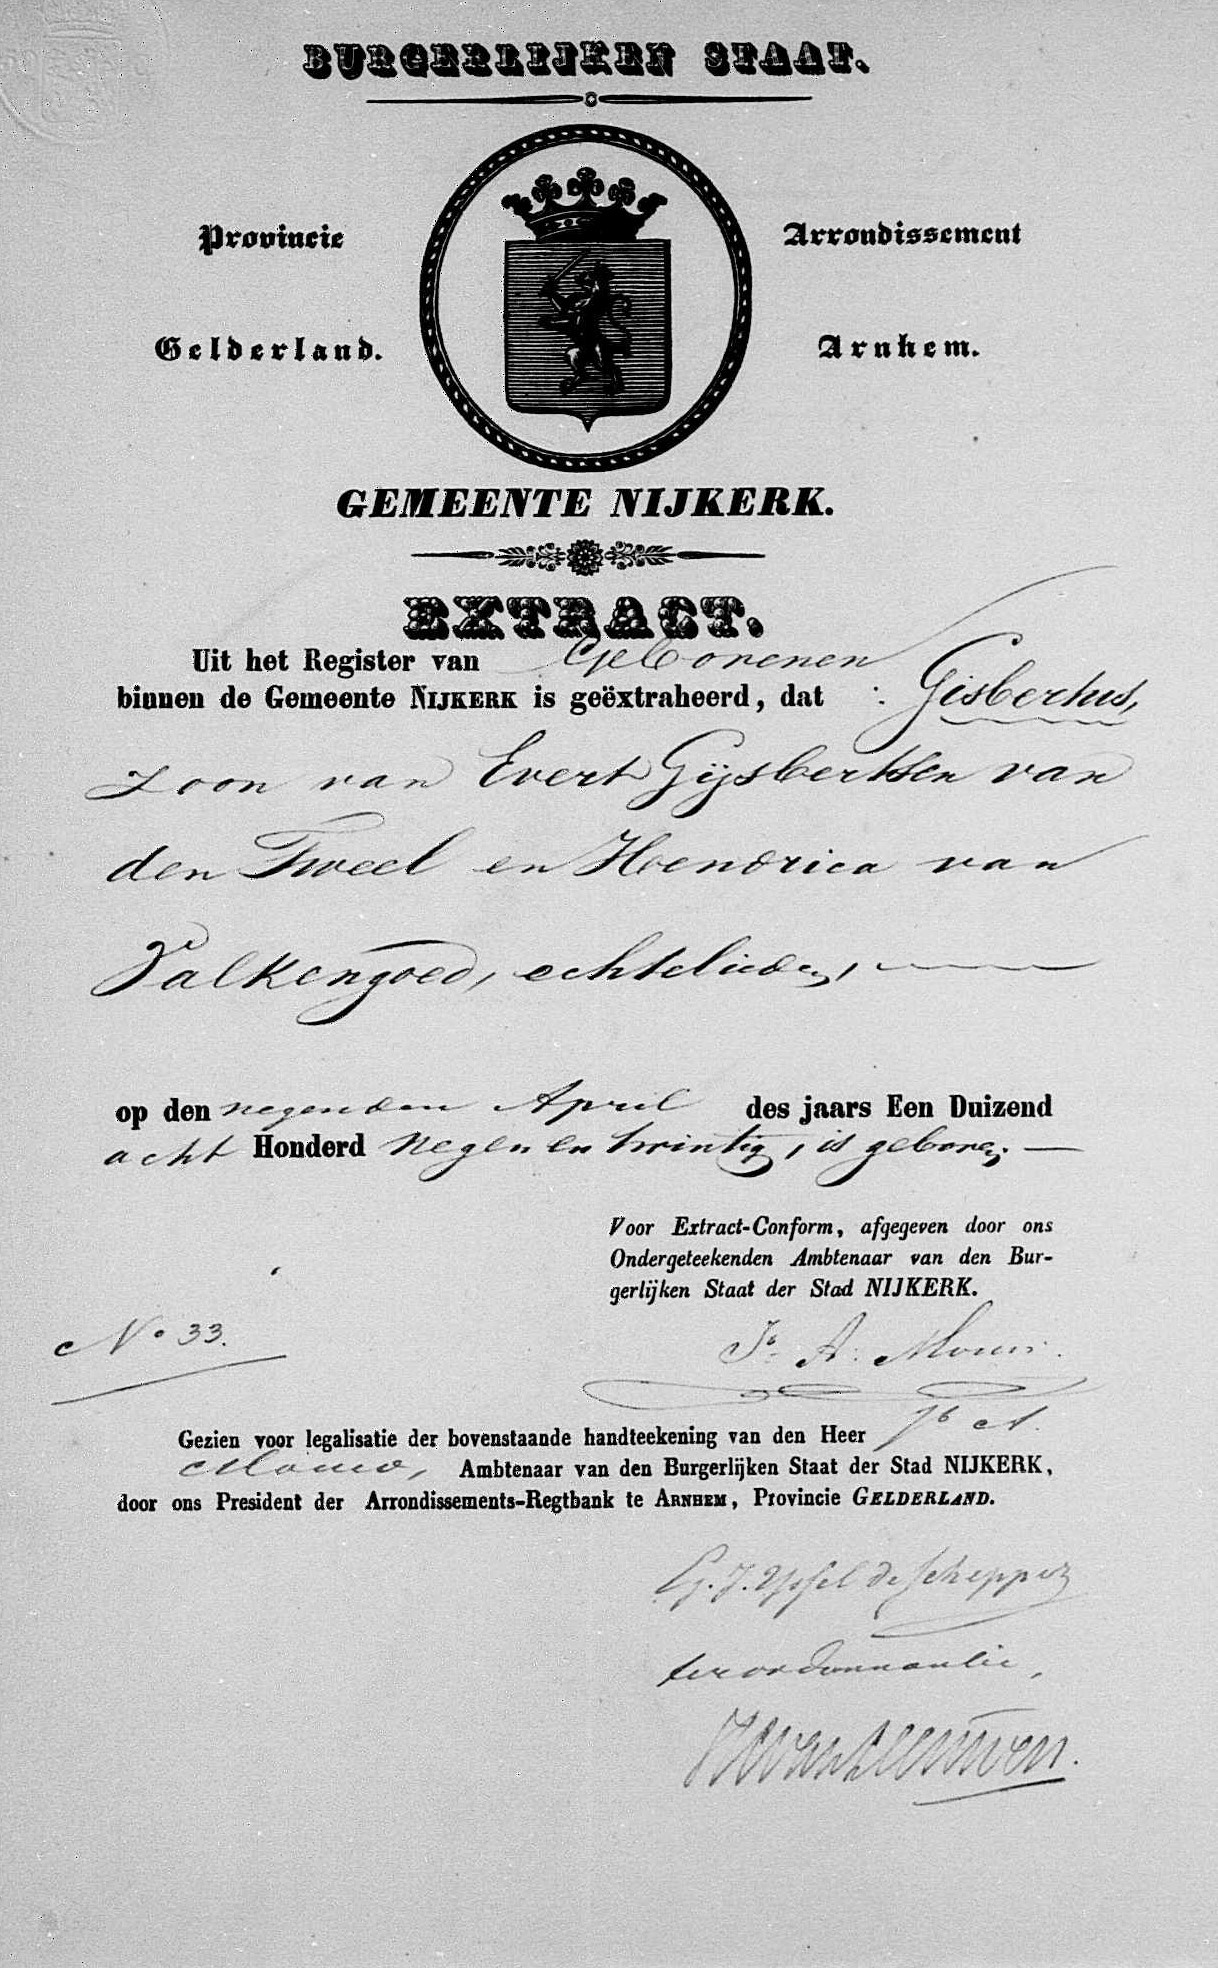 BURGERLIJKEN STAAT.
Provincie
Arrondissement
Gelderland.
Arnhem.
GEMEENTE NIJKERK.
EXTRACT.
Uit het Register van Geborenen
binnen de Gemeente NIJKERK is geëxtraheerd, dat : Gisbertus,
zoon van Evert Gijsbertsen van
den Tweel en Hendrica van
Valkengoed, echtelieden,
op den negenden April des jaars Een Duizend
acht Honderd negen en twintig, is geboren.
Voor Extract-Conform, afgegeven door ons
Ondergeteekenden Ambtenaar van den Bur-
gerlijken Staat der Stad NIJKERK.
No 33.
Jb. A.
Gezien voor legalisatie der bovenstaande handteekening van den Heer Jb A.
Ambtenaar van den Burgerlijken Staat der Stad NIJKERK,
door ons President der Arrondissements-Regtbank te ARNHEM, Provincie GELDERLAND.
G. J. Yssel de Schepper
ter ordonnantie,
van Leeuwen.